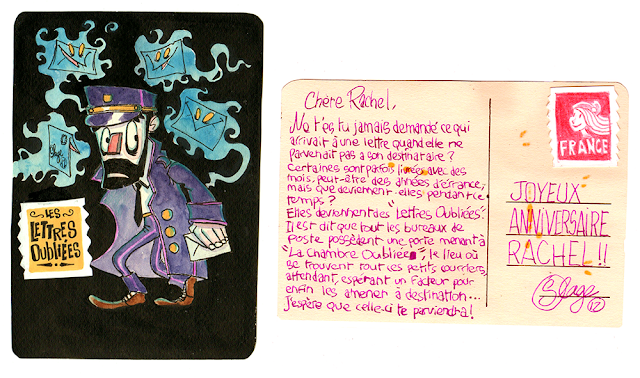 LES
LETTRES
OUBLIÉES
Chère Rachel,
Ne t'es tu jamais demandé ce qui
arrivait à une lettre quand elle ne
parvenait pas a son destinataire ?
Certaines sont parfois livrées avec des
mois, peut-être des années d'errance,
mais que deviennent-elles pendant ce
temps ?
Elles deviennent des "Lettres Oubliées".
Il est dit que tout les bureaux de
Poste possèdent une porte menant à
"La Chambre Oubliée", le lieu où
se trouvent tout ces petits courriers,
attendant, espérant un facteur pour
enfin les amener à destination...
J'espère que celle-ci te parviendra !
FRANCE
JOYEUX
ANNIVERSAIRE
RACHEL !!
12